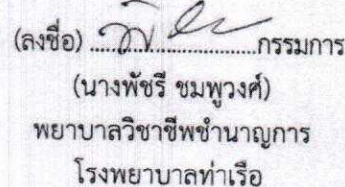 (ลงชื่อ) ........................ กรรมการ
(นางพัชรี ชมพูวงศ์)
พยาบาลวิชาชีพชำนาญการ
โรงพยาบาลท่าเรือ